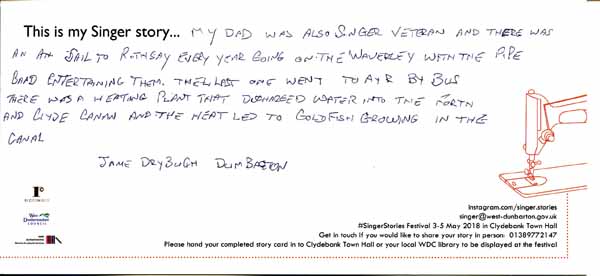 This is my Singer story... MY DAD WAS ALSO SINGER VETERAN AND THERE WAS
AN AN SAIL TO ROTHSAY EVERY YEAR GOING ON THE WAVERLEY WITH THE PIPE
BAND ENTERTAINING THEM. THE LAST ONE WENT TO AYR BY BUS
THERE WAS A HEATING PLANT THAT DISCHARGED WATER INTO THE FORTH
AND CLYDE CANAN AND THE HEAT LED TO GOLDFISH GROWING IN THE
CANAL
JAME DRYBUGH DUMBARTON
West
Dunbartonshire
COUNCIL
Instagram.com/singer.stories
singer@west-dunbarton.gov.uk
#SingerStories Festival 3-5 May 2018 in Clydebank Town Hall
Get in touch if you would like to share your story in person: 01389772147
Please hand your completed story card in to Clydebank Town Hall or your local WDC library to be displayed at the festival